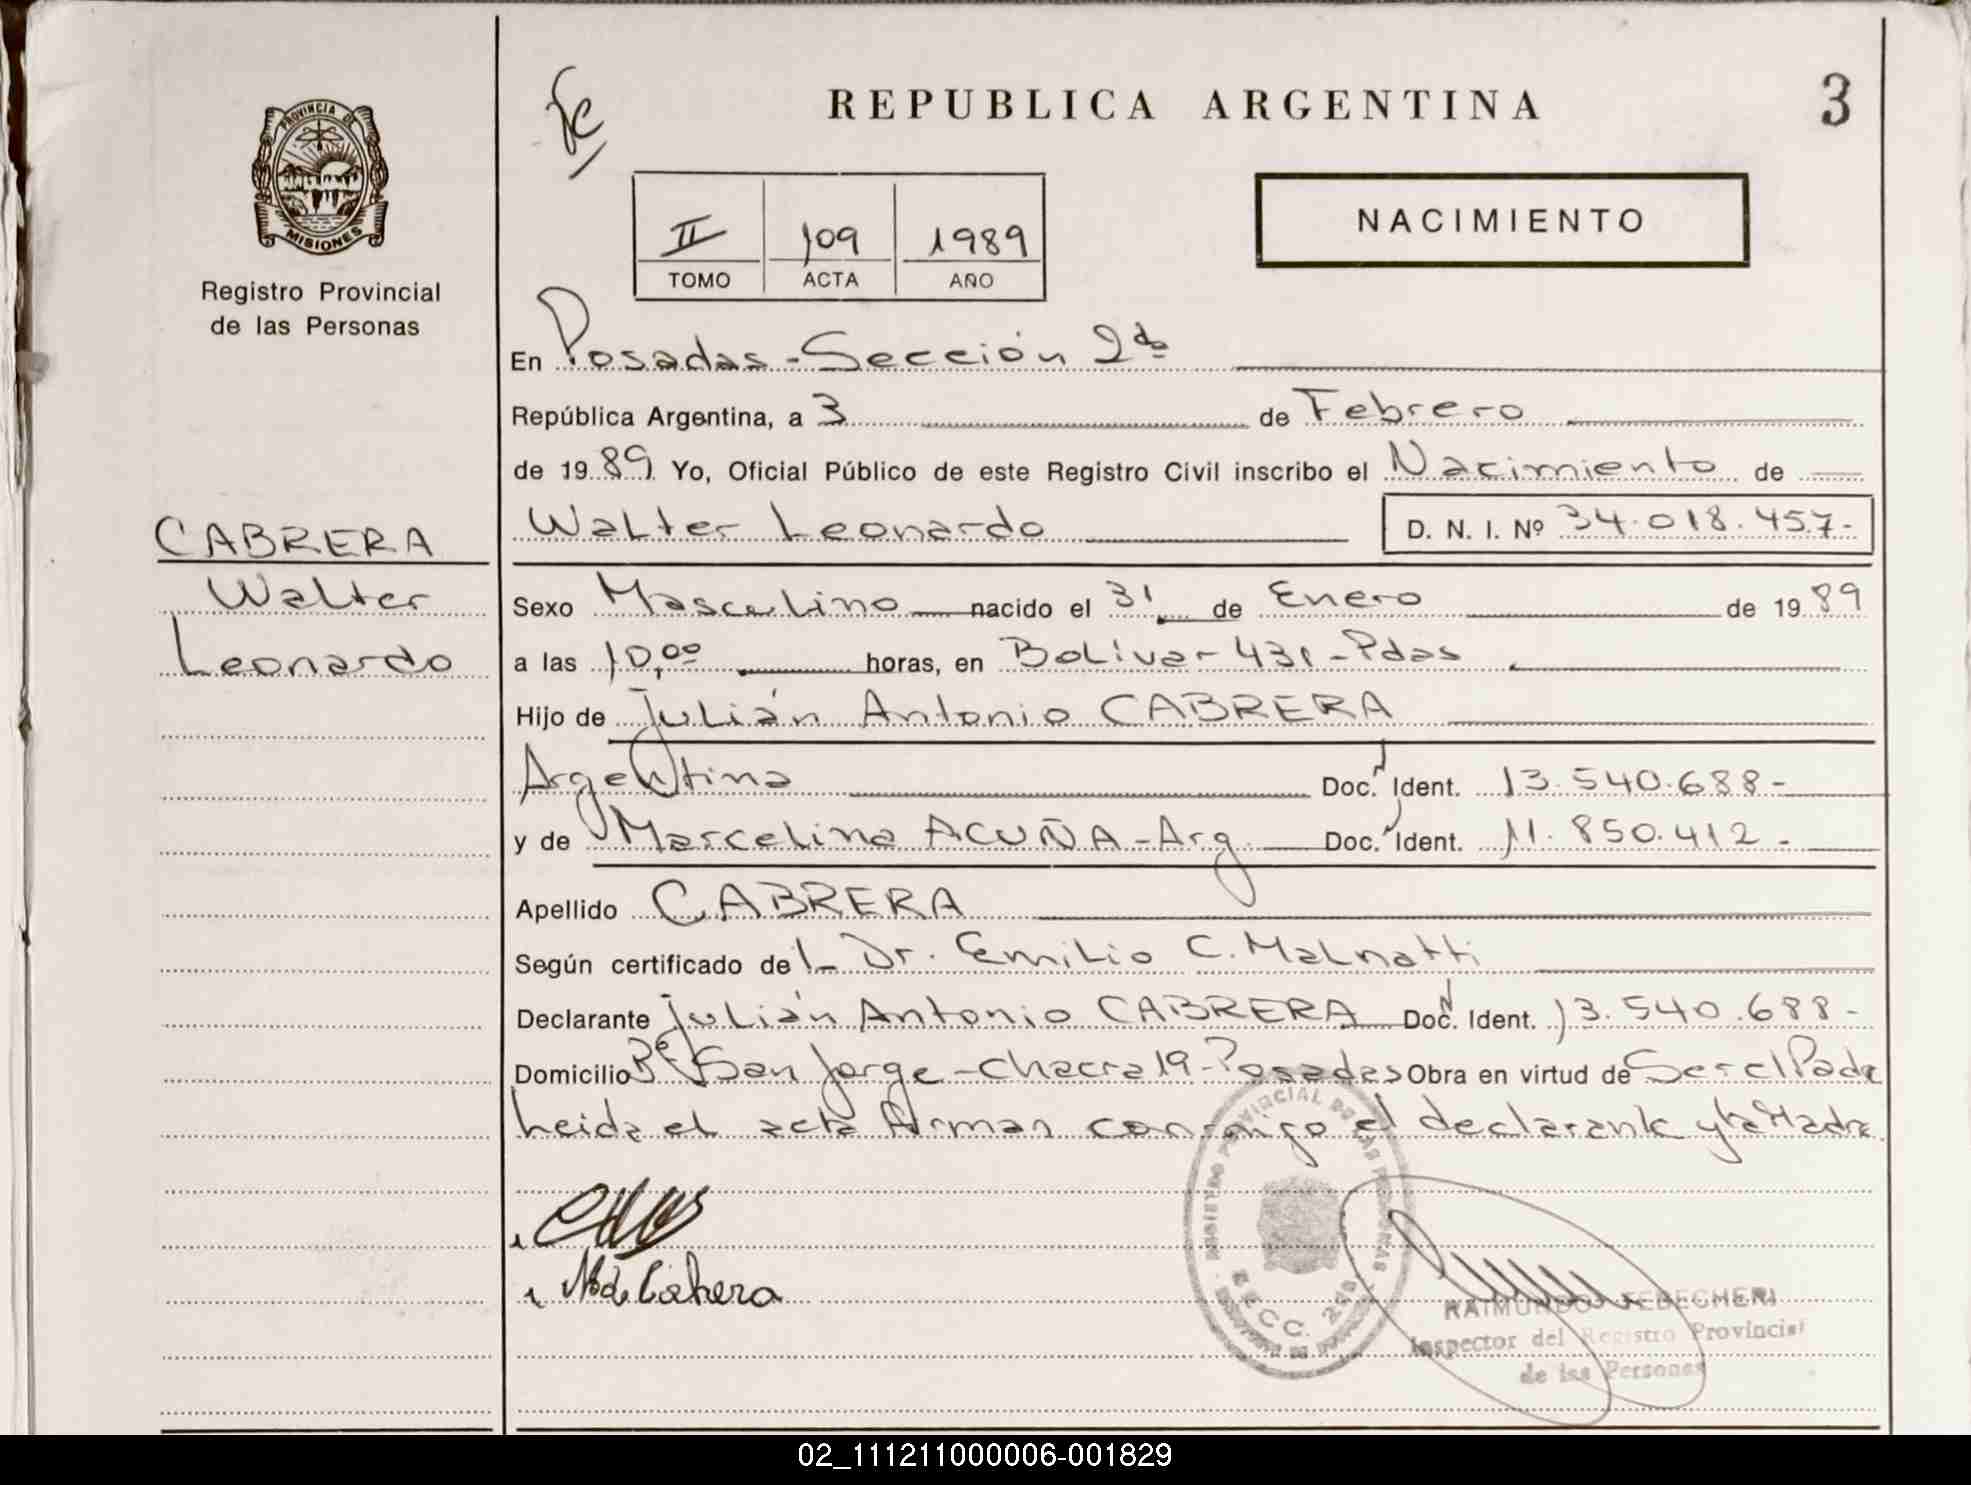 REPUBLICA ARGENTINA
3
PROVINCIA DE
MISIONES
Registro Provincial
de las Personas
NACIMIENTO
II 109 1989
TOMO ACTA AÑO
En Posadas - Sección 2da
República Argentina, a 3 de Febrero
de 1989 Yo, Oficial Público de este Registro Civil inscribo el Nacimiento de
CABRERA
Walter
Leonardo
Walter Leonardo D. N. I. Nº 34.018.457-
Sexo Masculino nacido el 31 de Enero de 1989
a las 10,00 horas, en Bolívar 431 - Pdas
Hijo de Julián Antonio CABRERA
Argentina Doc. Ident. 13.540.688-
y de Marcelina ACUÑA - Arg. Doc. Ident. 11.850.412-
Apellido CABRERA
Según certificado del Dr. Emilio C. Malnatti
Declarante Julián Antonio CABRERA Doc. Ident. 13.540.688-
Domicilio Bº San Jorge - Chacra 19 - Posadas Obra en virtud de Ser el Padre
Leida el acta firman conmigo el declarante y la Madre
REGISTRO PROVINCIAL DE LAS PERSONAS
SECC. 2da
RAIMUNDO
Inspector del Registro Provincial
de las Personas
02_111211000006-001829